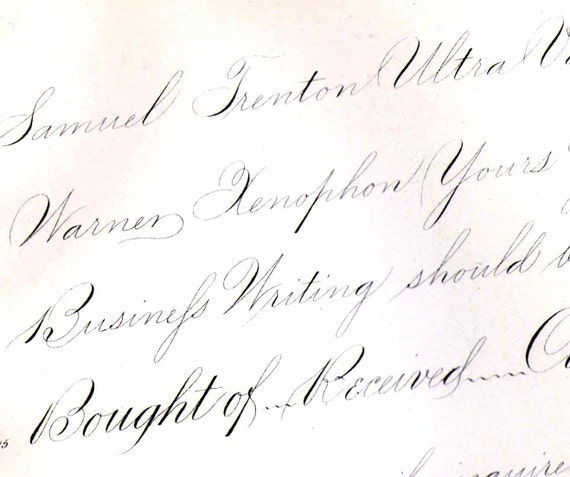 Samuel Trenton Ultra
Warner Xenophon Yours
Busineſs Writing should
Bought of Received